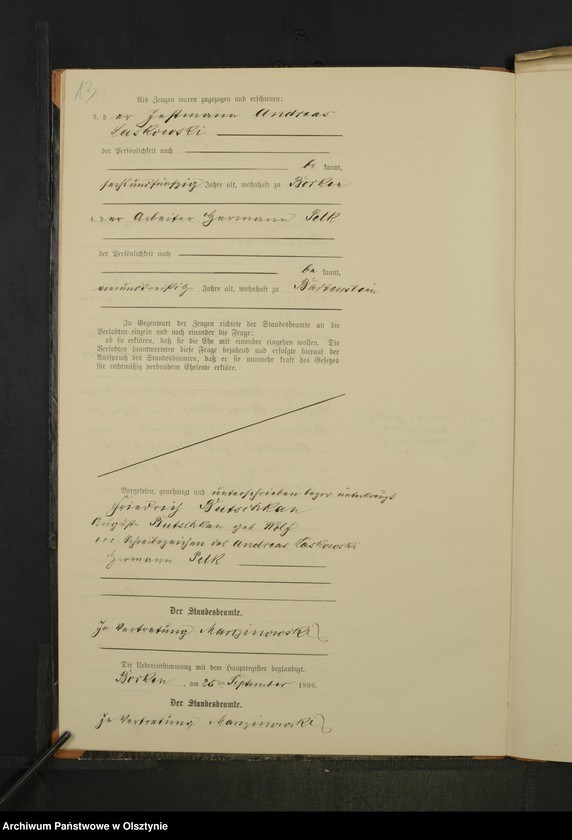 13
Als Zeugen waren zugezogen und erschienen:
3. der Instmann Andreas
Laskowski
der Persönlichkeit nach
be kannt,
sechsundfünfzig Jahre alt, wohnhaft zu Borken
4. der Arbeiter Hermann Pelk
der Persönlichkeit nach
be kannt,
vierunddreißig Jahre alt, wohnhaft zu Bartenstein
In Gegenwart der Zeugen richtete der Standesbeamte an die
Verlobten einzeln und nach einander die Frage:
ob sie erklären, daß sie die Ehe mit einander eingehen wollen. Die
Verlobten beantworteten diese Frage bejahend und erfolgte hierauf der
Ausspruch des Standesbeamten, daß er sie nunmehr kraft des Gesetzes
für rechtmäßig verbundene Eheleute erkläre.
Vorgelesen, genehmigt und unterschrieben bezw. unterkreuzt
Friedrich Butschkau
Auguste Butschkau geb. Wolf
+++ Schreibezeichen des Andreas Laskowski
Hermann Pelk
Der Standesbeamte.
In Vertretung Manzinowski
Die Uebereinstimmung mit dem Hauptregister beglaubigt.
Borken, am 26ten September 1896.
Der Standesbeamte.
In Vertretung Manzinowski
Archiwum Państwowe w Olsztynie